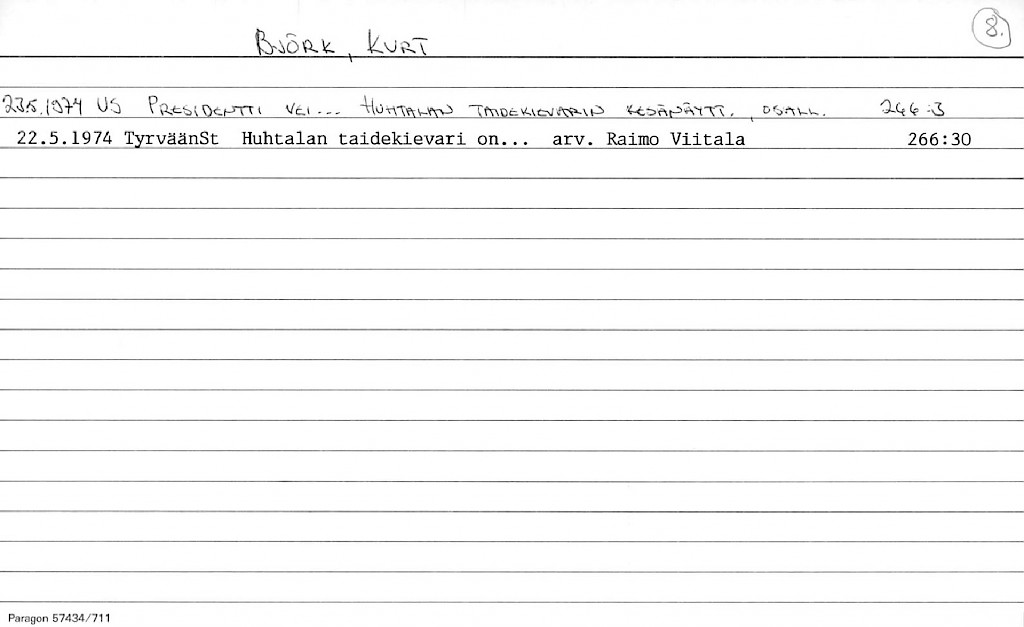 8.
BJÖRK, KURT
23.5.1974 US PRESIDENTTI VEI... HUHTALAN TAIDEKIEVARIN KESÄNÄYTT., OSALL. 266:3
22.5.1974 TyrväänSt Huhtalan taidekievari on... arv. Raimo Viitala 266:30
Paragon 57434/711